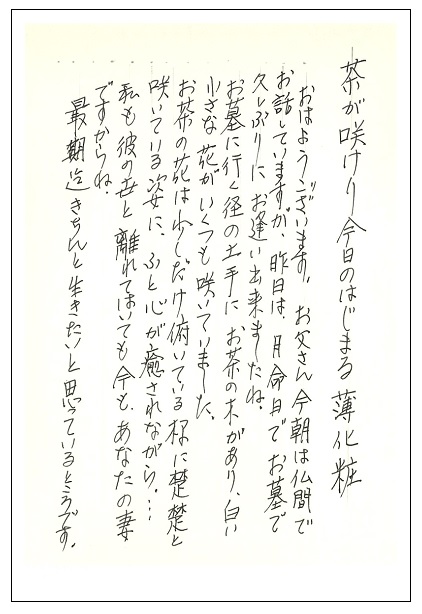 茶が咲けり今日のはじまる薄化粧
おはようございます。お父さん今朝は仏間で
お話していますが、昨日は、月命日でお墓で
久しぶりにお逢い出来ましたね。
お墓に行く径の土手にお茶の木があり、白い
小さな花がいくつも咲いていました。
お茶の花は少しだけ俯いている様に楚楚と
咲いている姿に、ふと心が癒されながら…
私も彼の世と離れてはいても今も、あなたの妻
ですからね。
最期迄きちんと生きたいと思っているところです。